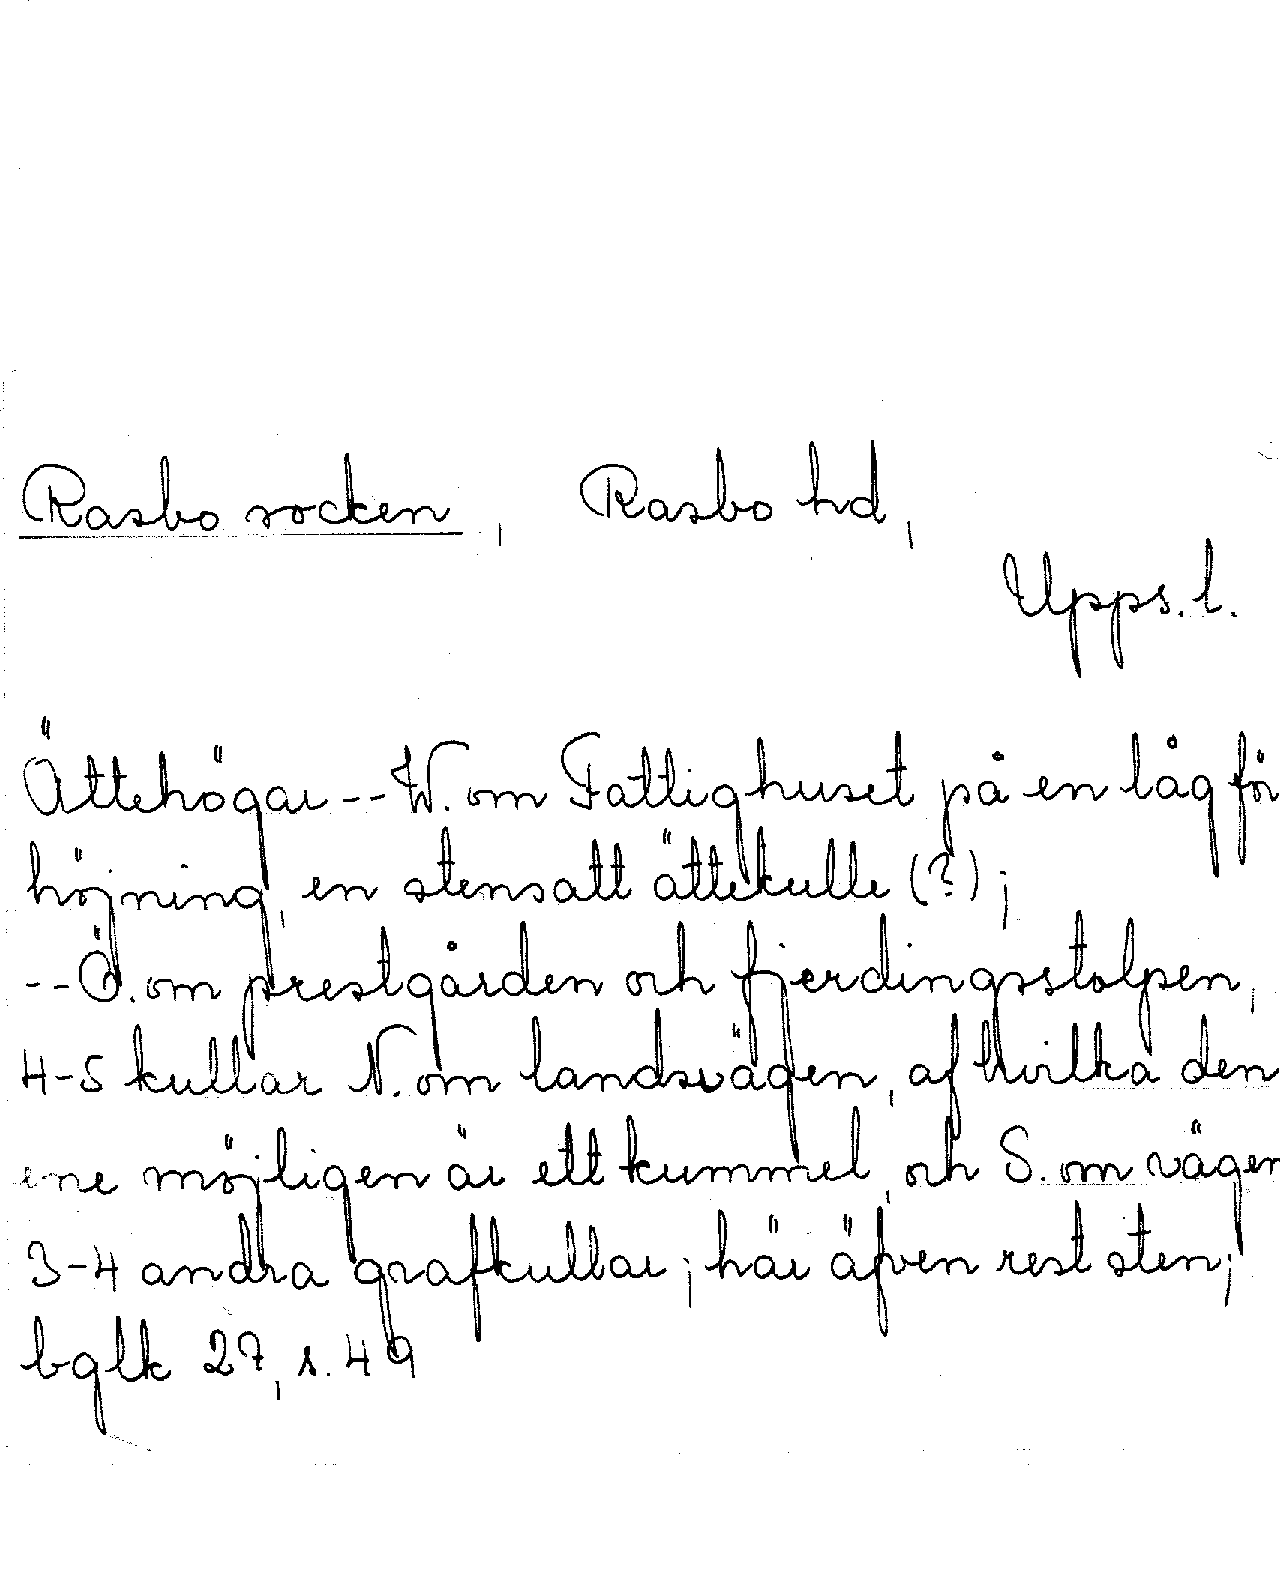 Rasbo socken, Rasbo hd,
Upps. l.
Ättehögar -- W. om Fattighuset på en låg för
höjning, en stensatt ättekulle (?);
-- Ö. om prestgården och fjerdingsstolpen,
4-5 kullar N. om landsvägen, af hvilka den
ene möjligen är ett kummel, och S. om vägen
3-4 andra grafkullar; här äfven rest sten;
bglk 27, s. 49